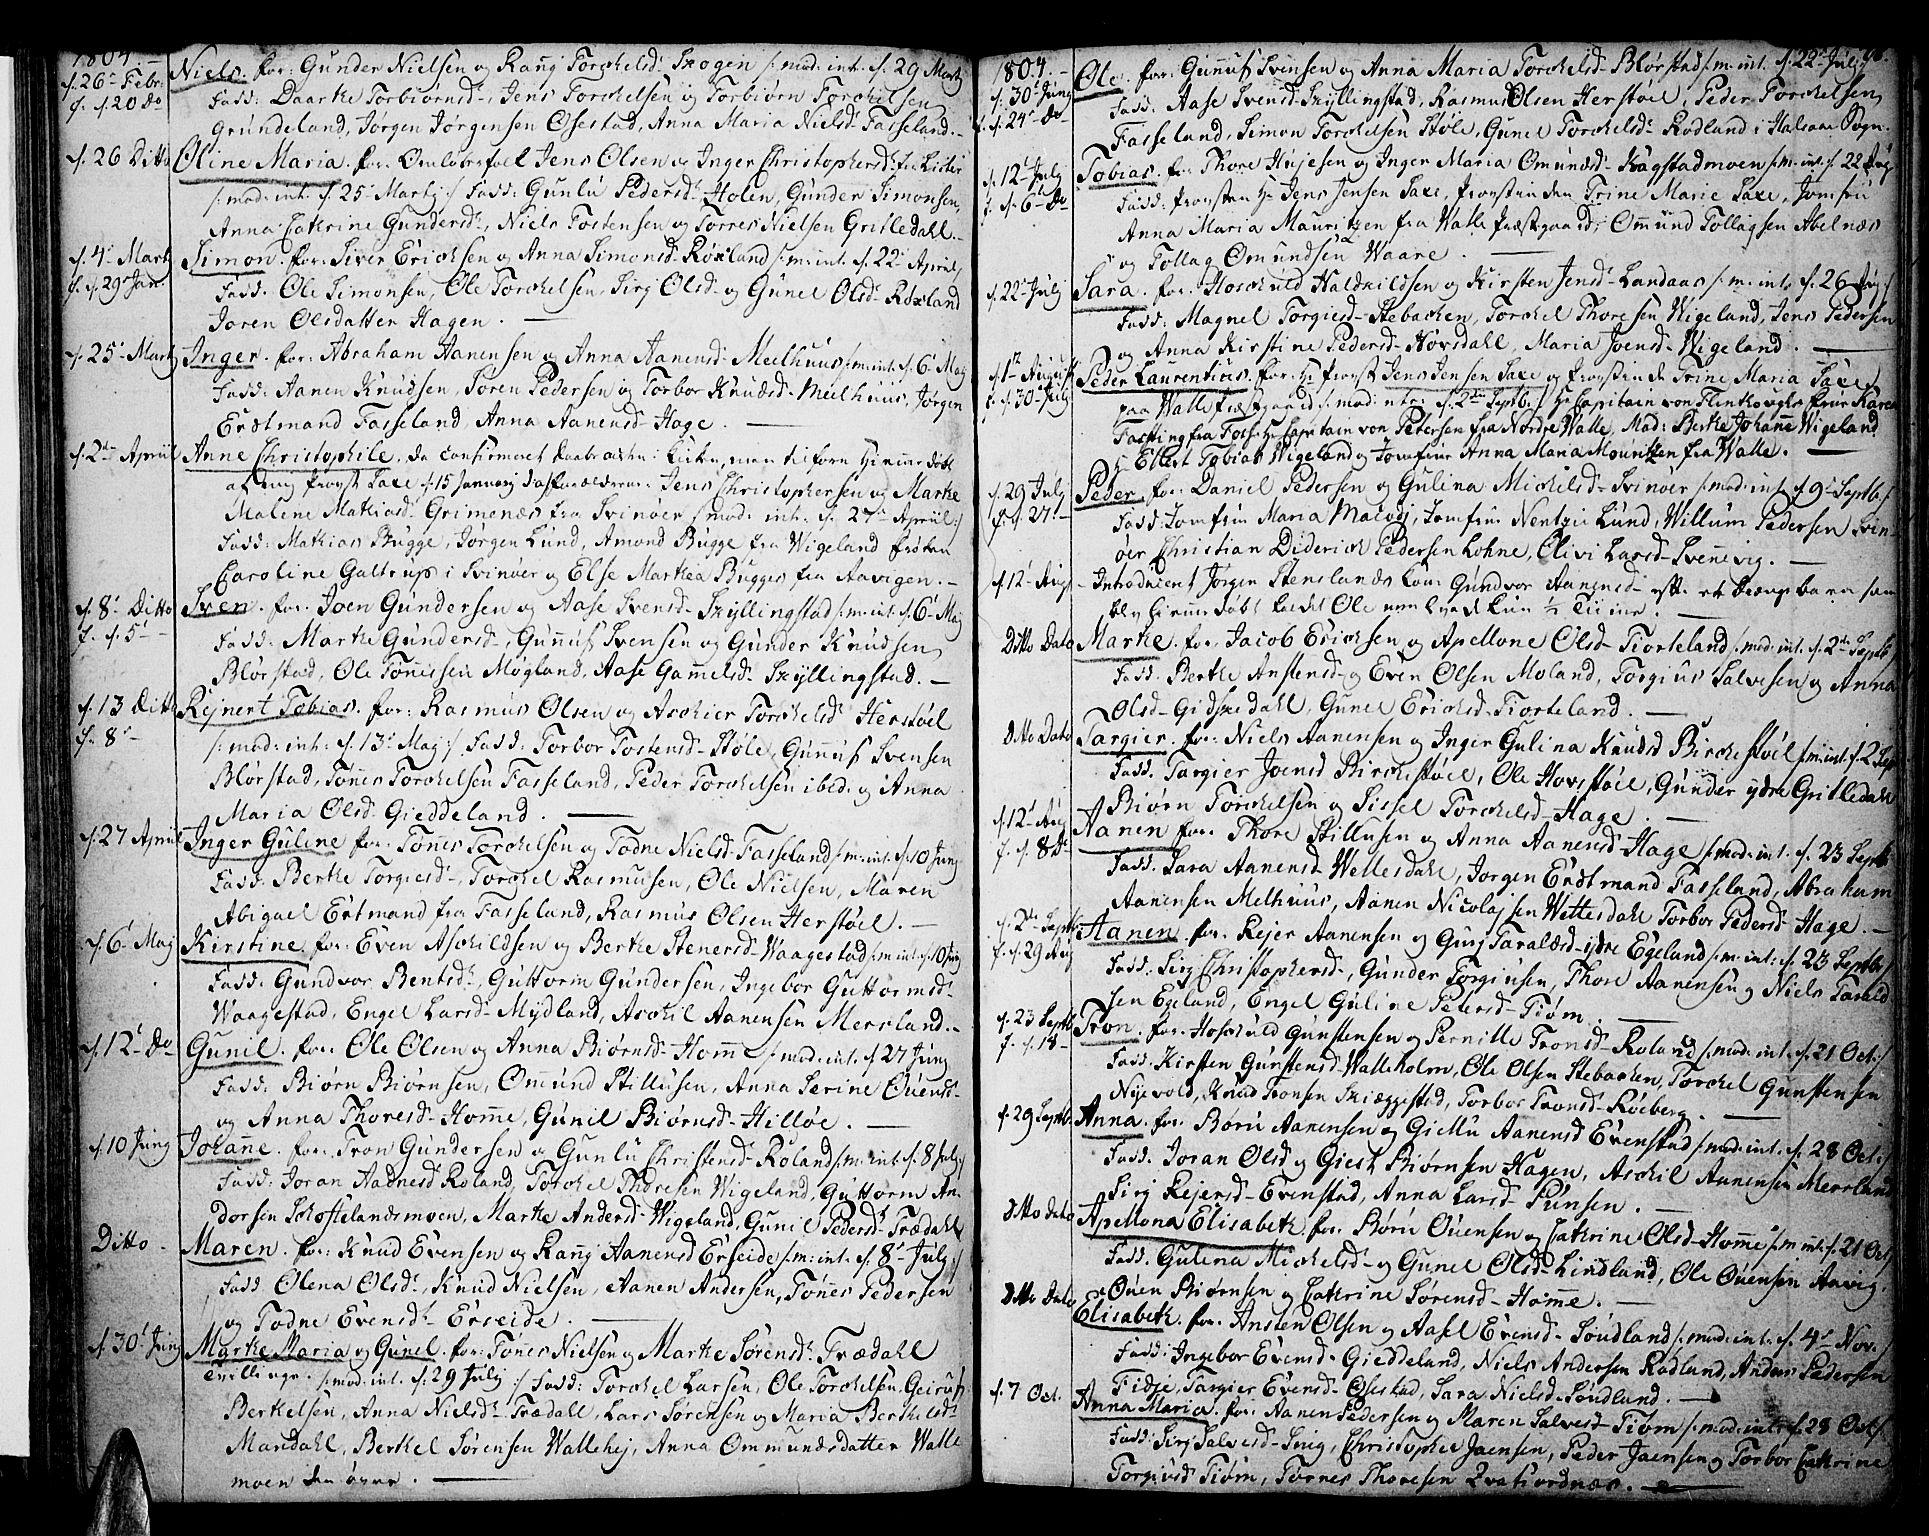 1804.
d. 26 Febr. Niels. for: Gunder Nielsen og Rang Torchelsd. Skogen /: mod: int. d. 29 Martj
f. d. 20 do Fadd: Daarte Torbiørnsd., Jens Torchelsen og Torbiørn Torchelsen
Grundeland, Jørgen Jørgensen Øsestad, Anna Maria Nielsd. Fasseland.
d. 26 Ditto Oline Maria. for: Jens Olsen og Inger Christophersd. fra Lister
/: mod: int: d. 25 Martj :/ Fadd: Gunlu Pedersd. Holen, Gunder Simonsen,
Anna Cathrine Gundersd., Niels Tostensen og Torres Nielsen Gritledahl.
d. 4 Martj Simon. for: Siver Erichsen og Anna Simonsd. Røxland /: m: int. d. 22 April/
f. d. 29 Jan. Fadd: Ole Simonsen, Ole Torchelsen, Sirj Olsd. og Gunel Olsd. Røxland
Joren Olsdatter Hagen.
d. 25 Martj Inger. for: Abraham Aanensen og Anna Aanensd. Meelhuus /: m: int. d. 6 Maj
Fadd: Aanen Knudsen, Søren Pedersen og Torbor Knudsd. Meelhuus, Jørgen
Erdtmand Fasseland, Anna Aanensd. Hage.
d. 2den Apriil Anne Christophile, da confirmeret Daabsacten i Kirken, men tilforn hiemme døbt
af mig Provst Saxe d. 15 Januarij Forældrene: Jens Christophersen og Marthe
Malene Mathiasd. Grimenæs fra Svinøer /: mod: int: d. 27 Apriil :/
Fadd: Mathias Bugge, Jørgen Lund, Amond Bugge fra Wigeland frøken
Caroline Galtrup i Svinøer og Else Marthea Bugges fra Aavigen.
d. 8 Ditto Sven. for: Joen Gundersen og Aase Svensd. Skyllingstad /: m: int. d. 6 Maj
f. d. 5 Fadd: Marthe Gundersd., Gunuf Svensen og Gunder Knudsen
Blørstad, Ole Tønnessen Møgland, Aase Gammelsd. Skyllingstad.
d. 13 Ditto Rejnert Tobias. for: Rasmus Olsen og Aschier Torchelsd. Herstøel
f. 8 /: mod: int: d. 13 Maj :/ Fadd: Torbor Tostensd. Støle, Gunuf Svensen
Blørstad, Tønnes Torchelsen Fasseland, Peder Torchelsen ibid: og Anna
Maria Olsd. Gieddeland.
d. 27 Apriil Inger Guline for: Tønnes Torchelsen og Todne Nielsd. Fasseland /: m: int. d. 10 Junj
Fadd: Berthe Torgiersd., Torchel Rasmusen, Ole Nielsen, Maren
Abigael Ertmand fra Fasseland, Rasmus Olsen Herstøel.
d. 6 Maj Kirstine. for: Even Aschildsen og Berthe Stenersd. Waagestad /: m: int: d. 10 Junj
Fadd: Gundvor Bentsd., Guttorm Gundersen, Ingebor Guttormsd.
Waagestad, Engel Larsd. Mydland, Aschil Aanensen Merrland.
d. 12 do Gunil. for: Ole Olsen og Anna Biørnsd. Homme /: mod: int. d. 27 Junj
Fadd: Biørn Biørnsen, Omund Stillusen, Anna Serine Ouensd.
og Anna Thoresd. Homme, Gunil Biørnsd. Hilløe.
d. 10 Junj Johanne. for: Tron Gundersen og Gunlu Christensd. Roland /: m: int. d. 8 Julj :/
Fadd: Joran Aadnesd Roland, Torchel Thoresen Wigeland, Guttorm An-
dorsen Skoftelandsmoen, Marthe Andersd. Wigeland, Gunil Pedersd. Trædahl
Ditto Maren. for: Knud Evensen og Rang Aanensd Erseide /: m: int. d. 8 Julj :/
Fadd Olena Olsd., Knud Nielsen, Aanen Andersen, Tønes Pedersen
og Todne Evensd. Erseide.
d. 30 Junj Marthe Maria og Gunel. for: Tønes Nielsen og Marthe Sørensd. Trædahl
Tvillinger. /: mod: int. d. 29 Julij :/ Fadd: Torchel Larsen, Ole Torchelsen, Geiruf
Berthelsen, Anna Nielsd. Trædahl, Lars Sørensen og Maria Berthelsd.
Mandahl, Berthel Sørensen Wallehej, Anna Ommundsdatter Walle
moen den øvre.
1804. 96.
d. 30 Junj Ole. for: Gunuf Svensen og Anna Maria Torchelsd. Blørstad /: m: int. d. 22 Julj
f. d. 24 do Fadd: Aase Svensd. Skyllingstad, Rasmus Olsen Herstøel, Peder Torchelsen
Fasseland, Simon Torchelsen Støle, Gunel Torchelsd. Rodland i Halsaae Sogn.
d. 12 Julj Tobias. for: Thore Hujesen og Inger Maria Omundsd. Kagstadmoen /: m: int: d. 22 Aug
f. d. 6 do Fadd: Provsten Hr Jens Jensen Saxe, Provstinden Trine Marie Saxe, Jomfru
Anna Maria Mauritzen fra Walle Præstgaard, Ommund Tollagsen Abelnæs
og Tollag Omundsen Waare.
d. 22 Julj Sara. for: Hoschuld Haldvildsen og Kirsten Jensd. Landaas /: m: int. d. 26 Aug :/
Fadd: Magnel Torgiersd. Stebacken, Torchel Thoresen Wigeland, Jens Pedersen
og Anna Kirstine Pedersd. Høvsdahl, Maria Joensd. Wigeland.
d. 1st August Peder Laurentius. for: Hr Provst Jens Jensen Saxe og Provstinde Trine Maria Saxe
f. d. 30 Julj paa Walle Præstegaard /: mod: intr: d. 2den Septb. :/ Hr Capitain von Flenkovgks frue Karen
Fasting fra Foss. Hr Capitain von Petersen fra Nordre Walle, Mad: Berthe Johanne Wigeland
Hr Ellert Tobias Wigeland og Jomfrue Anna Maria Mouritzen fra Walle.
d. 29 Julj Peder. for: Daniel Pedersen og Gulina Michelsd. Svinøer /: mod: int. d. 9 Septb. /
f. d. 27 Fadd: Jomfru Maria Macodj, Jomfru Nentzie Lund, Willum Pedersen Svin-
øer Christian Diderich Pedersen Lohne, Olivi Larsd. Svennevig.
d. 12 Aug Introduceret Jørgen Stenslands kone Gundvor Aanensd. efter et drengebarn som
blev hiemme døbt kaldet Ole men levede kun ½ Time.
Ditto Dato Marthe. for: Jacob Erichsen og Apellone Olsd. Tiorteland /: mod: int. d. 2den Septb/
Fadd: Berthe Anstensd. og Even Olsen Moland, Torgius Salvesen og Anna
Olsd. Gidskedahl, Gunel Erichsd. Tiorteland.
Ditto Dato Targier. for: Niels Aanensen og Inger Gulina Knudsd Birchestøel /: m: int. d. 2 Sept
Fadd. Targier Joensd Birchestøel, Ole Hovsstøel, Gunder ydre Gritledahl
Biørn Torchelsen og Sissel Torchelsd. Hage.
d. 12 Aug Aanen for: Thore Stillusen og Anna Aanensd. Hage /: mod: int. d. 23 Septb.
f. d. 8 do Fadd: Sara Aanensd. Wettesdahl, Jørgen Erdtmand Fasseland, Abraham
Aanensen Melhuus, Aanen Nicolajsen Wettesdahl Torbor Pedersd. Hage.
d. 2de Septb Aanen. for: Rejer Aanensen og Gurj Taraldsd. ydre Egeland /: m: int: d. 23 Septb/
f. d. 29 Aug Fadd: Sirj Christophersd., Gunder Torgiusen, Thore Aanensen og Niels Tarald
sen Egeland, Engel Guline Petersd. Tiøm.
d. 23 Septb Tron. for: Hofschuld Gunstensen og Pernille Tronsd. Roland /: mod: int. d. 21 Oct :/
f. d. 18 Fadd. Kirsten Gunstensd. Walleholm, Ole Olsen Stebacken, Torchel Gunstensen
Nyevold, Knud Tronsen Skiæggestad, Torbor Tronsd. Røeberg.
d. 29 Septb. Anna. for: Børu Aanensen og Giellu Aanensd Evenstad /: mod: int. d. 28 Oct :/
Fadd: Joran Olsd og Giest Biørnsen Hagen, Aschil Aanensen Merrland
Sirj Rejersd. Evenstad, Anna Larsd. Punsen.
Ditto dato Apellona Elisabeth for: Børu Ouensen og Cathrine Olsd. Homme /: m: int. d. 21 Oct/
Fadd: Gulena Michelsd. og Gunel Olsd. Lindland, Ole Ouensen Aavig
Ouen Biørnsen og Cathrine Sørensd. Homme.
Ditto Dato Elisabeth. for: Ansten Olsen og Aasel Evensd. Sundland /: mod: int: d. 4 Nov: /
Fadd: Ingebor Evensd. Gieddeland, Niels Andersen Rodland, Anders Pedersen
Fidje, Targier Evensd. Øsestad, Sara Nielsd. Sundland.
d. 7 Oct. Anna Maria. for: Aanen Pedersen og Maren Salvesd. Tiøm /: mod: int: d. 28 Oct/
Fadd: Sirj Salvesd. Snig, Christopher Jaensen, Peder Jaensen og Torbor Cathrine
Torgiusd Tiøm, Tørres Thoresen Qvatiordnæs.